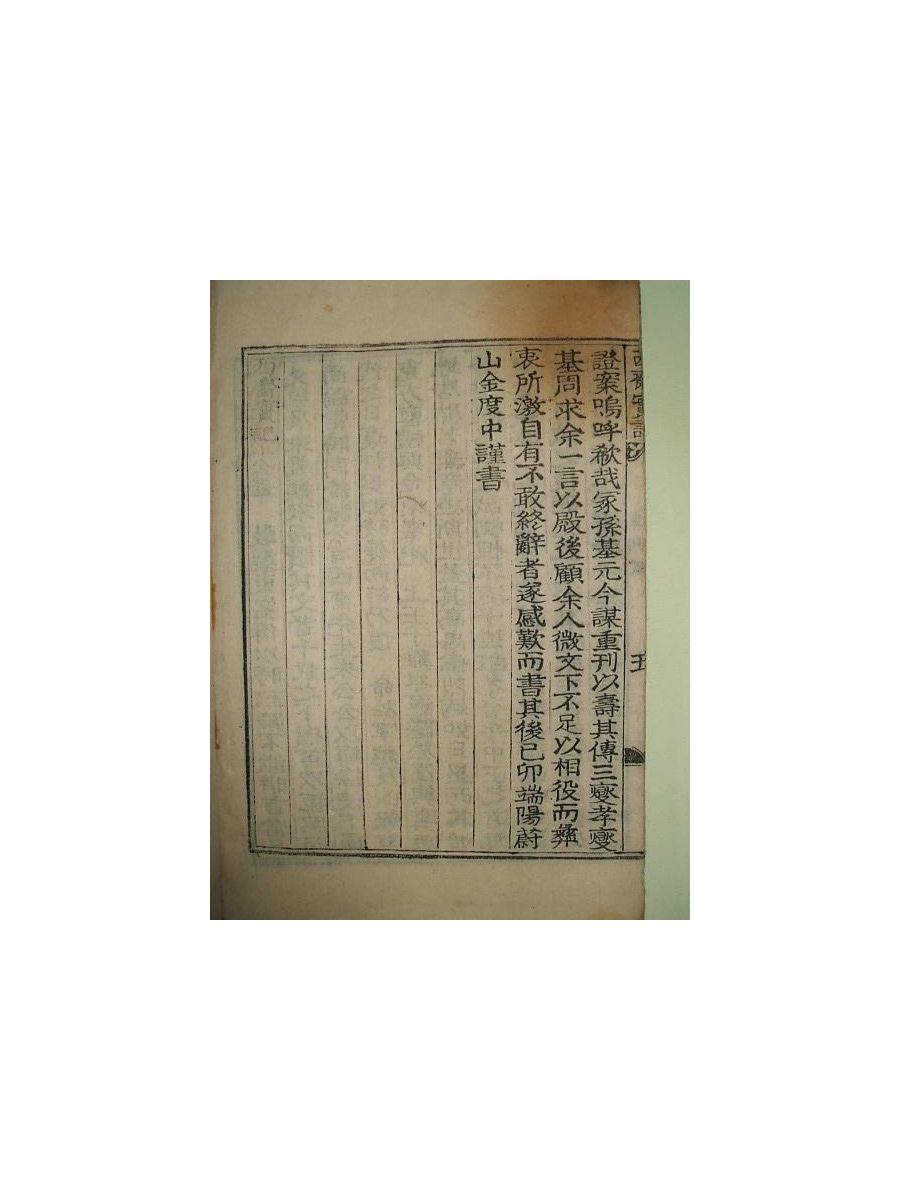 齋實記
五
證案嗚呼欷哉冢孫基元今謀重刊以壽其傳三燮孝燮
基周求余一言以殿後顧余人微文下不足以相役而彝
衷所激自有不敢終辭者遂感歎而書其後己卯端陽蔚
山金度中謹書